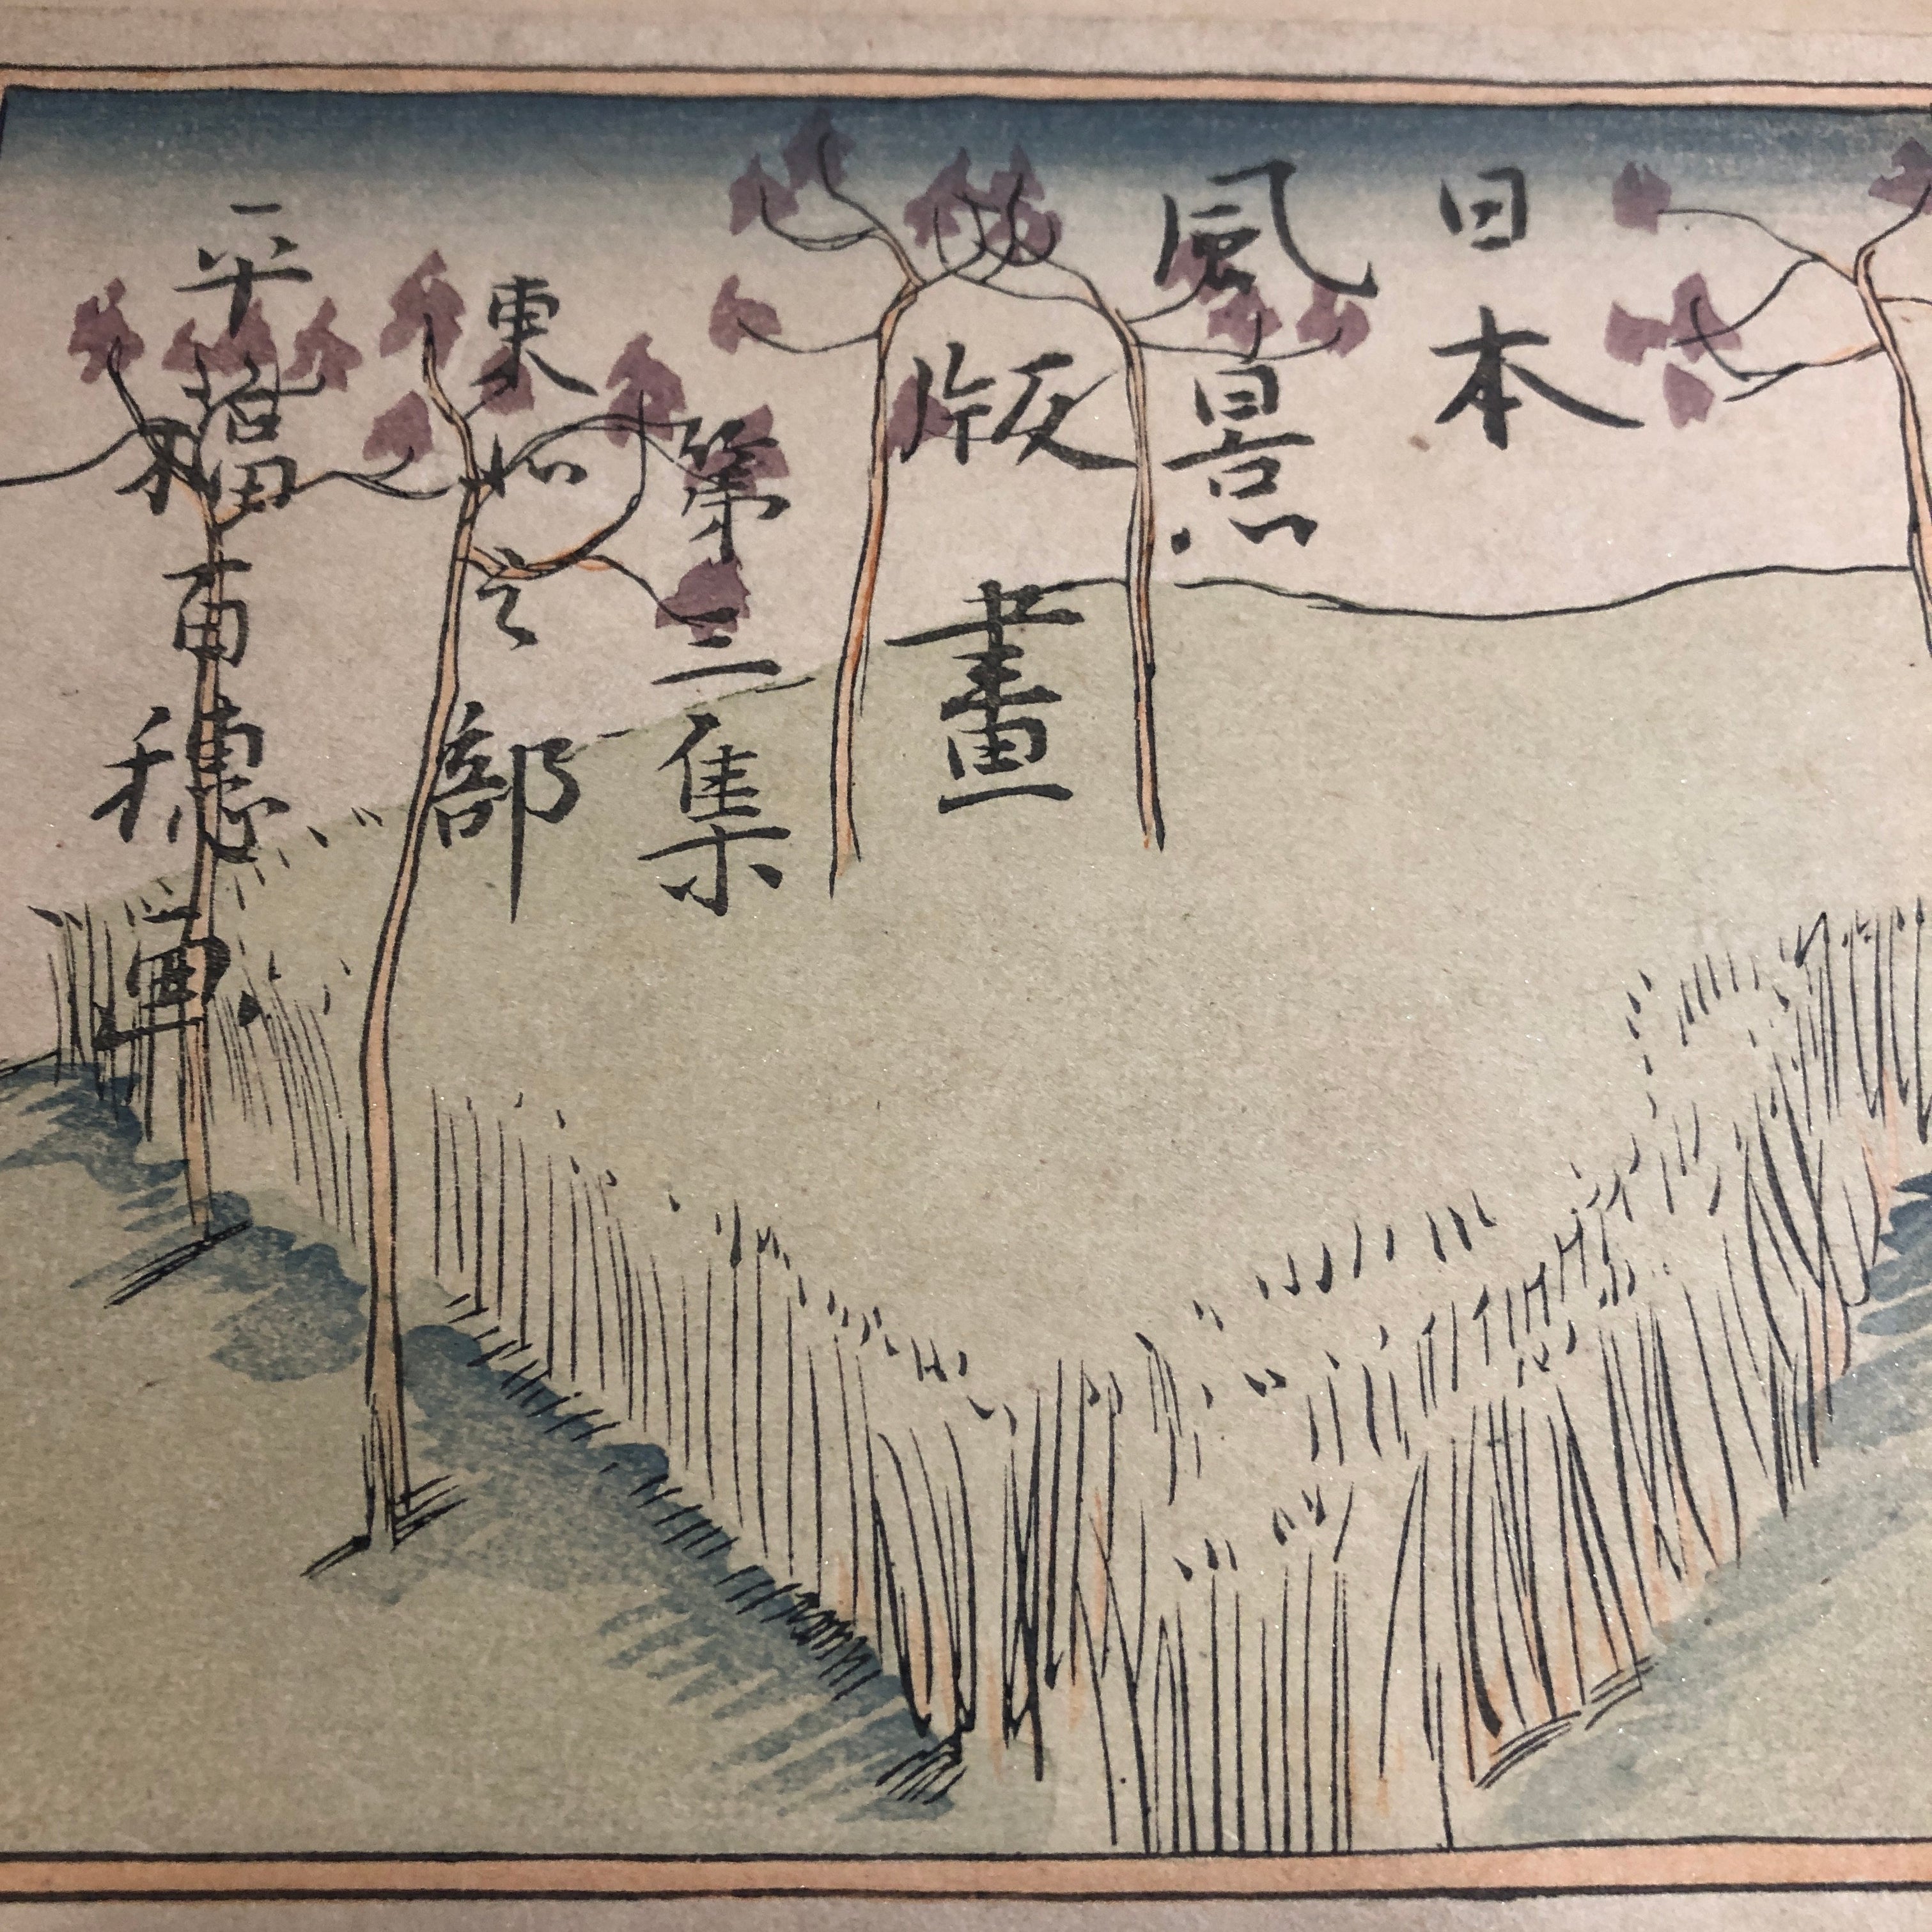 日本
風景
版畫
第三集
東北之部
平福百穗画